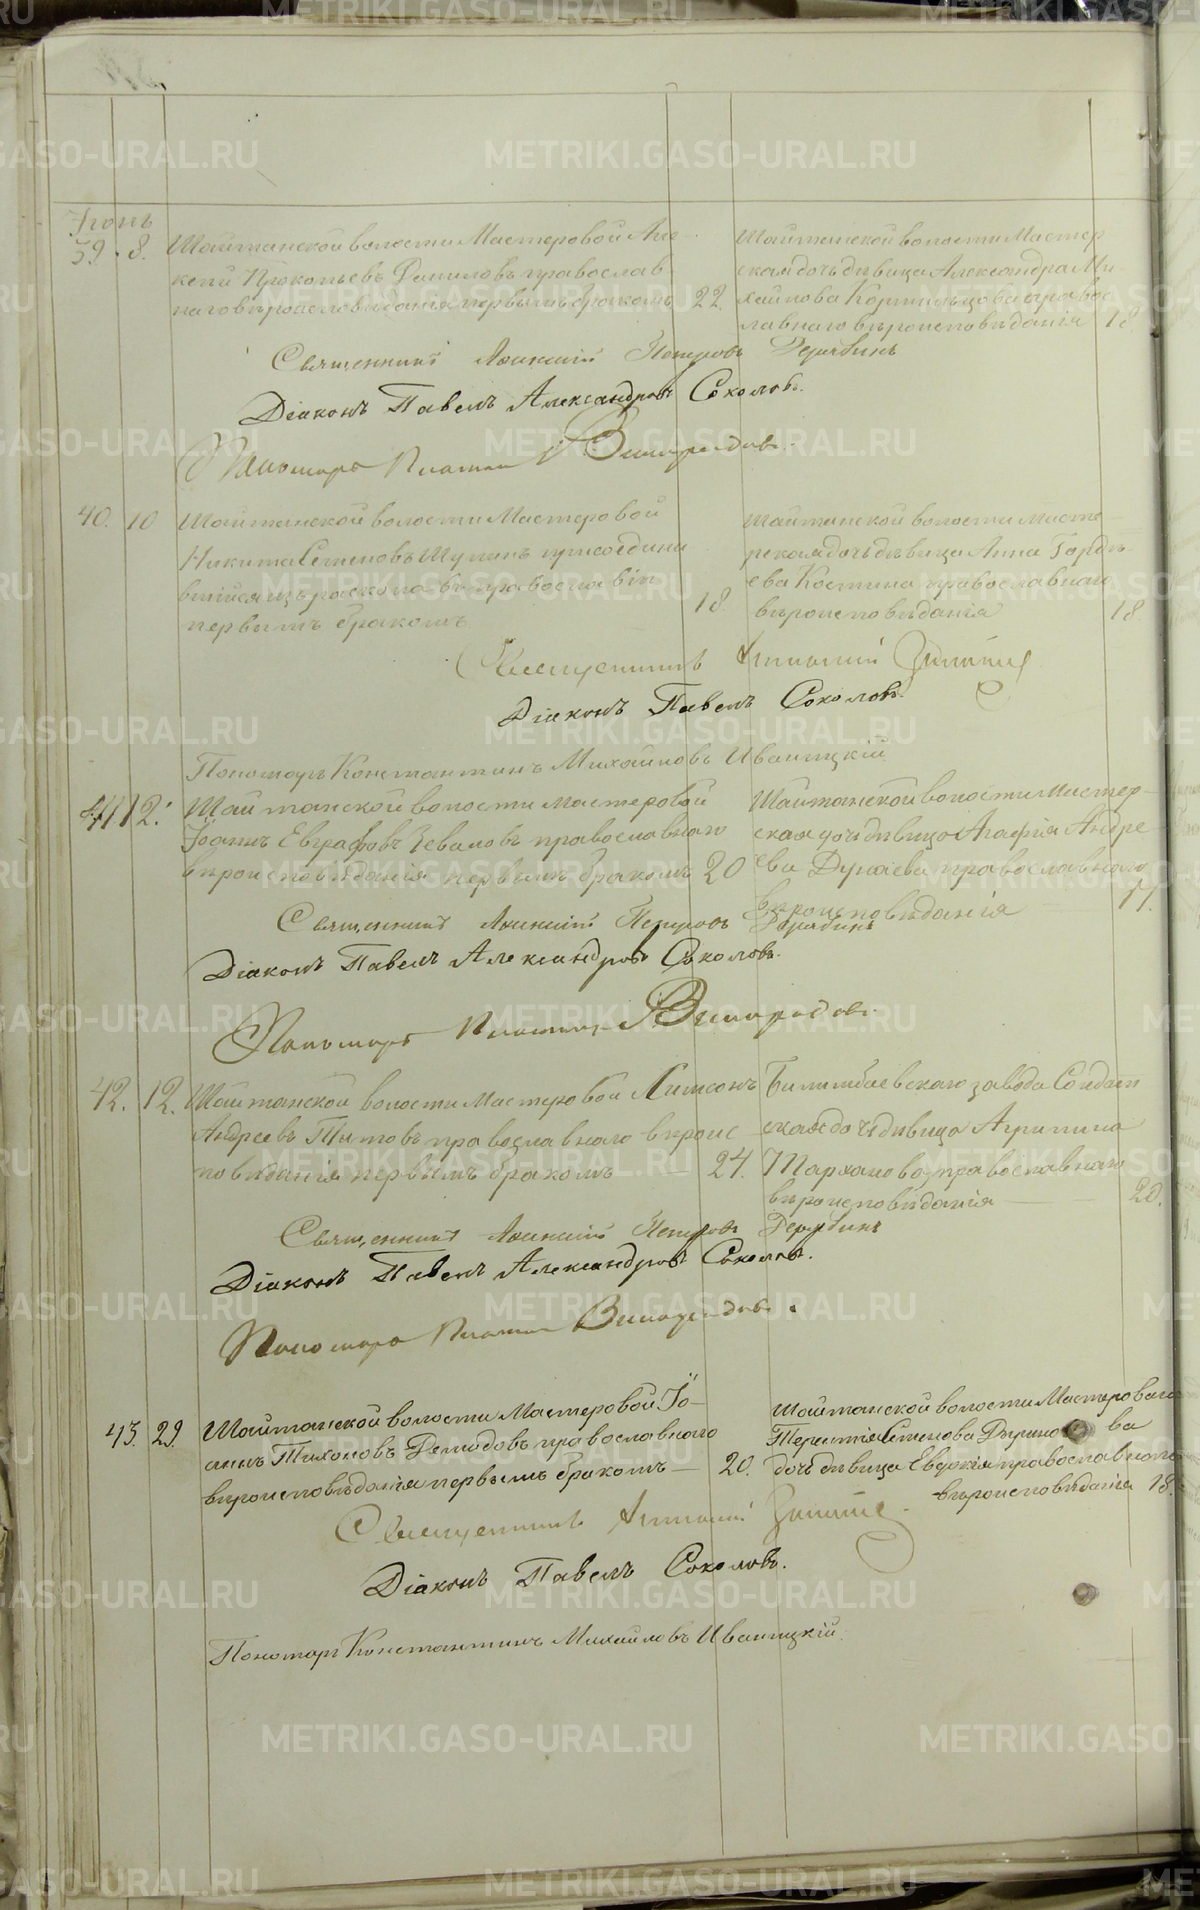 Іюнь
39. 8. Шайтанской волости Мастеровой Але-
ксей Прокопьевъ Даниловъ православ-
наго вѣроисповѣданія первымъ бракомъ 22.
Шайтанской волости Мастер-
ская дочь дѣвица Александра Ми-
хайлова Кормильцова правос-
лавнаго вѣроисповѣданія 18
Священникъ Алексій Петровъ Дерябинъ
Діаконъ Павелъ Александровъ Соколовъ.
Пономарь Платонъ Виноградовъ.
40. 10 Шайтанской волости Мастеровой
Никита Семеновъ присоедини
вшійся изъ раскола въ православіе
первымъ бракомъ 18.
Шайтанской волости Масте-
рская дочь дѣвица Анна Гордѣ-
ева Костина православнаго
вѣроисповѣданія 18.
Священникъ
Діаконъ Павелъ Соколовъ.
Пономарь Константинъ Михайловъ Иваницкій
41 12. Шайтанской волости Мастеровой
Іоаннъ Евграфовъ православнаго
вѣроисповѣданія первымъ бракомъ 20
Шайтанской волости Мастер-
ская дочь дѣвица Агафія Андре
ева Дунаева православнаго
вѣроисповѣданія 17.
Священникъ Алексій Петровъ Дерябинъ
Діаконъ Павелъ Александровъ Соколовъ.
Пономарь Платонъ Виноградовъ.
42. 12. Шайтанской волости Мастеровой Самсонъ
Андреевъ Титовъ православнаго вѣроис
повѣданія первымъ бракомъ 24.
Билимбаевскаго завода Солдат
ская дочь дѣвица Агрипина
Тарханова православнаго
вѣроисповѣданія 20.
Священникъ Алексій Петровъ Дерябинъ
Діаконъ Павелъ Александровъ Соколовъ.
Пономарь Платонъ Виноградовъ.
43. 29. Шайтанской волости Мастеровой Іо-
аннъ Тихоновъ Демидовъ православнаго
вѣроисповѣданія первымъ бракомъ 20.
Шайтанской волости Мастероваго
Терентія Семенова
дочь дѣвица Евдокія православнаго
вѣроисповѣданія 18.
Священникъ
Діаконъ Павелъ Соколовъ.
Пономарь Константинъ Михайловъ Иваницкій.
METRIKI.GASO-URAL.RU